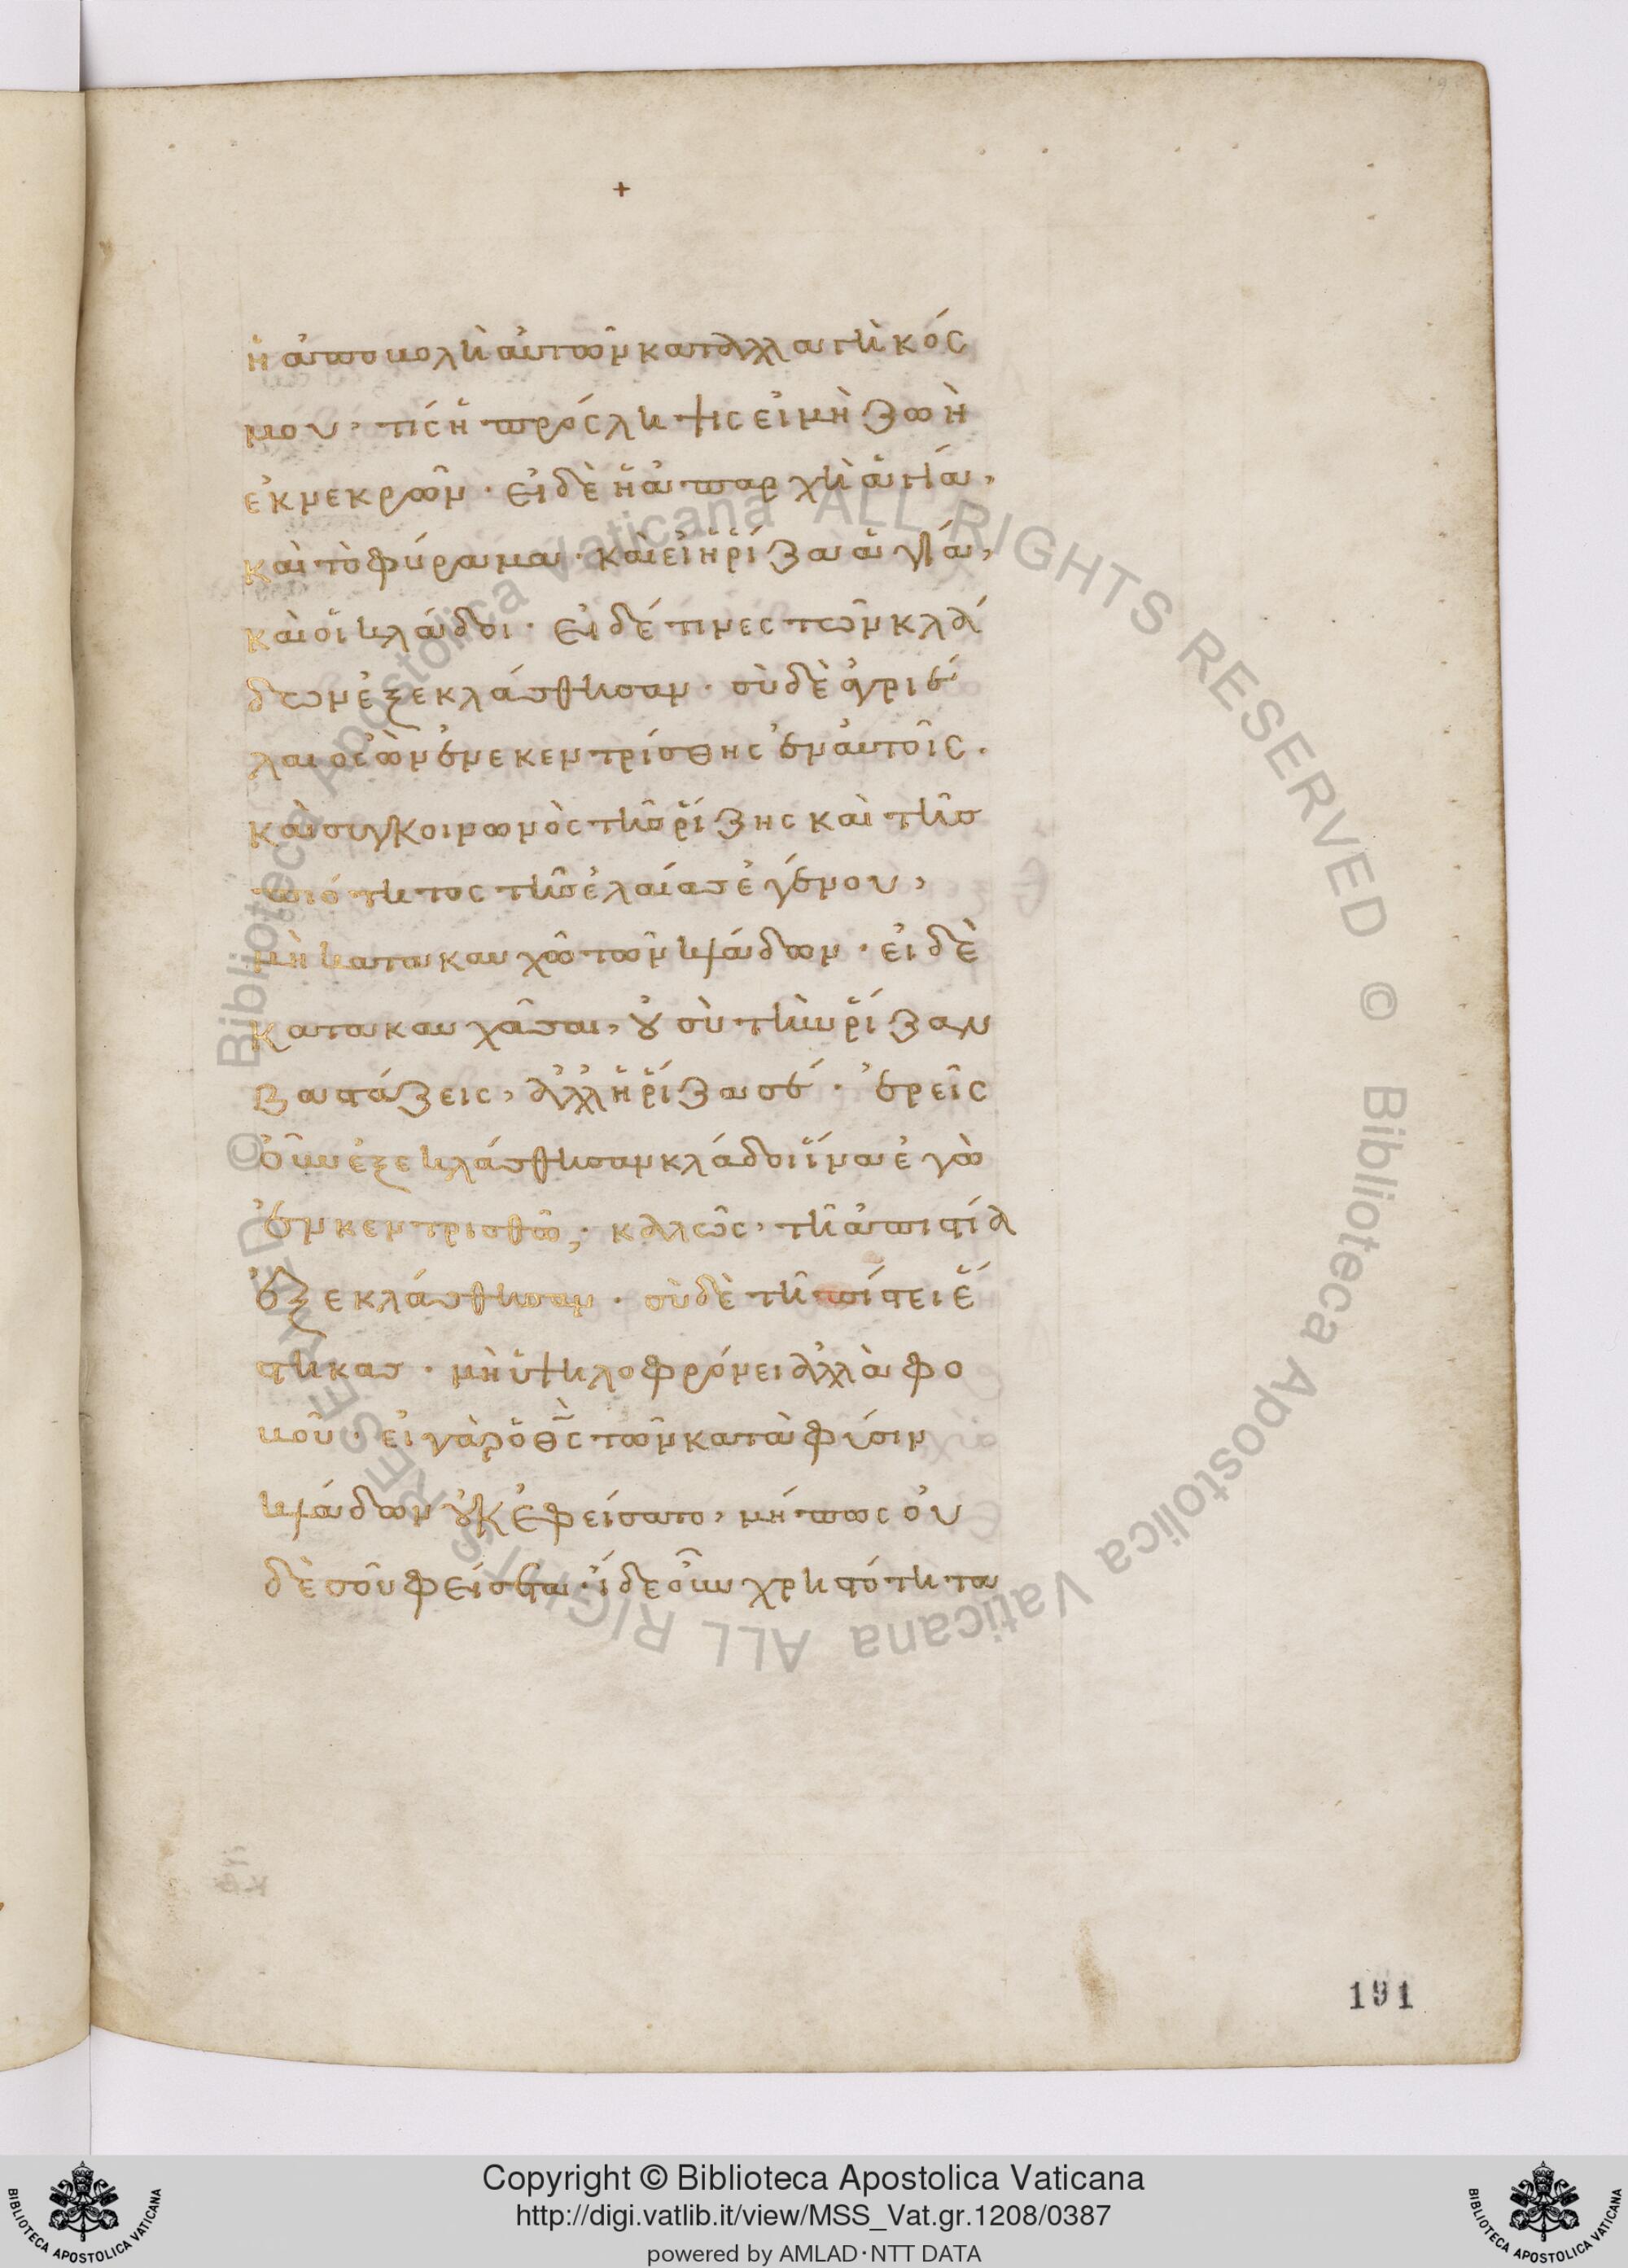 +
ἡ ἀποβολὴ αὐτῶν καταλλαγὴ κόσ
μου· τίς ἡ πρόσληψις εἰ μὴ ζωὴ
ἐκ νεκρῶν· εἰ δὲ ἡ ἀπαρχὴ ἁγία,
καὶ τὸ φύραμα· καὶ εἰ ἡ ῥίζα ἁγία,
καὶ οἱ κλάδοι· εἰ δέ τινες τῶν κλά
δων ἐξεκλάσθησαν· σὺ δὲ ἀγριέ
λαιος ὢν ἐνεκεντρίσθης ἐν αὐτοῖς.
καὶ συγκοινωνὸς τῆς ῥίζης καὶ τῆς
πιότητος τῆς ἐλαίας ἐγένου,
μὴ κατακαυχῶ τῶν κλάδων· εἰ δὲ
κατακαυχᾶσαι, οὐ σὺ τὴν ῥίζαν
βαστάζεις, ἀλλ' ἡ ῥίζα σέ· ἐρεῖς
οὖν ἐξεκλάσθησαν κλάδοι ἵνα ἐγὼ
ἐνκεντρισθῶ; καλῶς, τῇ ἀπιστίᾳ
ἐξεκλάσθησαν· σὺ δὲ τῇ πίστει ἕ
στηκας· μὴ ὑψηλοφρόνει ἀλλὰ φο
βοῦ· εἰ γὰρ ὁ θς τῶν κατὰ φύσιν
κλάδων οὐκ ἐφείσατο, μήπως οὐ
δὲ σοῦ φείσηται· ἴδε οὖν χρηστότητα
191
© Biblioteca Apostolica Vaticana ALL RIGHTS RESERVED © Biblioteca Apostolica Vaticana ALL RIGHTS RESERVED
Copyright © Biblioteca Apostolica Vaticana
http://digi.vatlib.it/view/MSS_Vat.gr.1208/0387
powered by AMLAD·NTT DATA
BIBLIOTECA APOSTOLICA VATICANA
BIBLIOTECA APOSTOLICA VATICANA